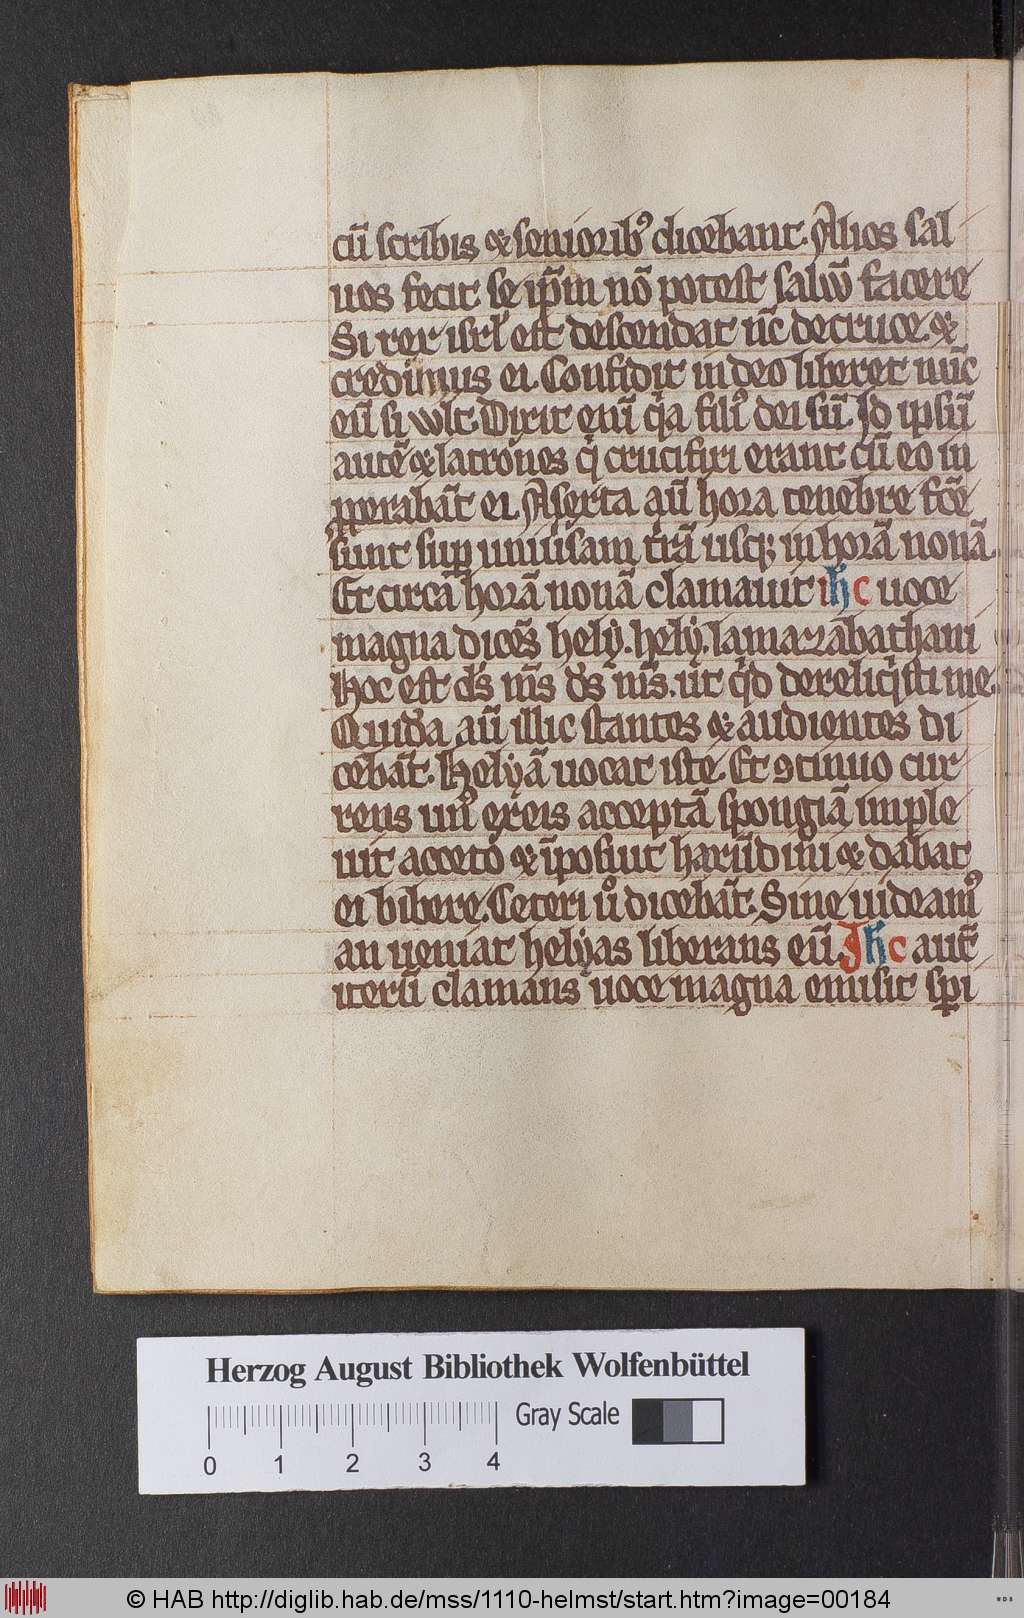 cū scribis & senioribꝰ dicebant. Alios sal
uos fecit se ip̄m nō potest saluū facere
Si rex isrl̄ est descendat nc̄ decruce &
credimus ei. Confidit indeo liberet nūc
eū si wlt. Dixit enī qͥa filiꝰ dei sū. Id ipsū
autē & latrones qͥ crucifixi erant cū eo in
ꝓperabāt ei. A sexta aū hora tenebre fc̄e
sunt sup uniūsam t̄rā usqꝫ inhorā nonā.
Et circa horā nonā clamauit ihc uoce
magna dicēs hely. hely. lamazabathani
Hoc est ds̄ ms̄ ds̄ ms̄. ut qͥd dereliqͥsti me.
Quidā aū illic stantes & audientes di
cebāt. Helyā uocat iste. Et ꝯtinuo cur
rens unꝰ exeis acceptā spongiā imple
uit acceto & īposuit harūdini & dabat
ei bibere. Ceteri uͦ dicebāt. Sine uideamꝰ
an ueniat helyas liberans eū. Jhc aut̄
iterū clamans uoce magna emisit spi
Herzog August Bibliothek Wolfenbüttel
0 1 2 3 4 Gray Scale
© HAB http://diglib.hab.de/mss/1110-helmst/start.htm?image=00184